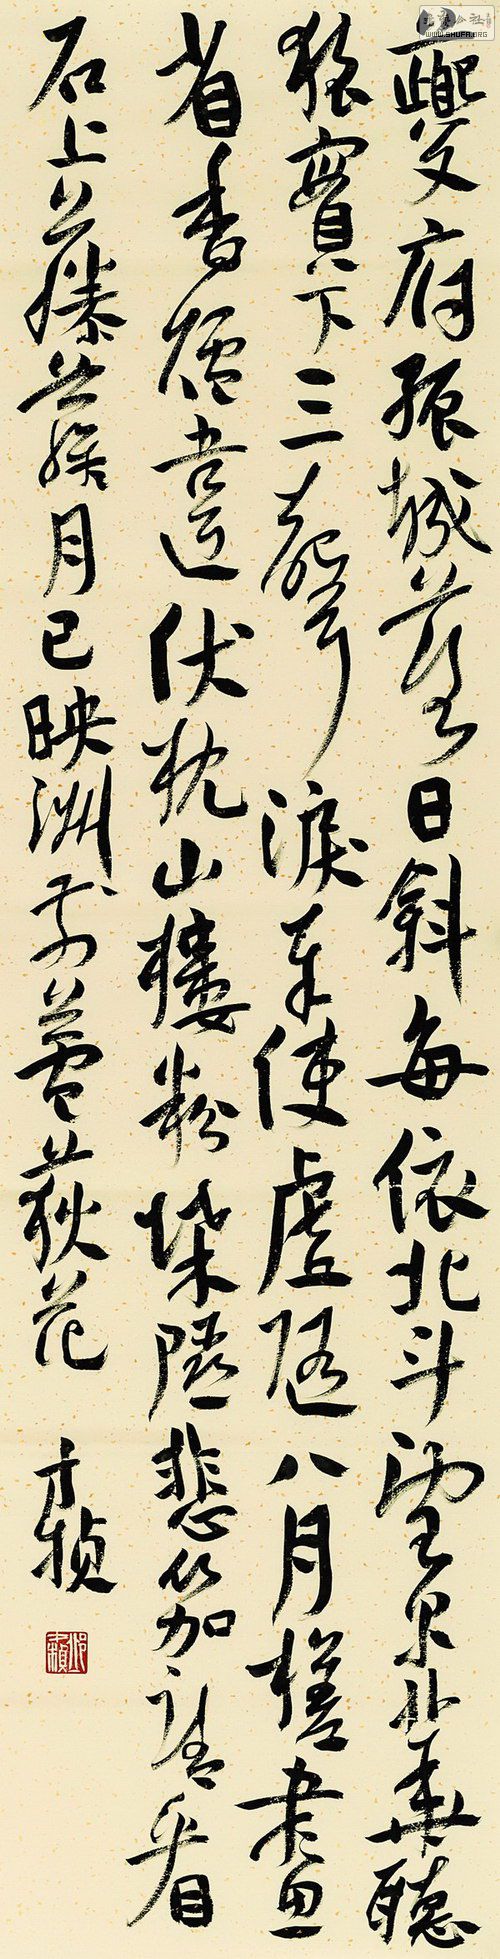 夔府孤城落日斜每依北斗望京華聽
猿實下三聲淚奉使虛隨八月槎畫
省香爐違伏枕山樓粉堞隱悲笳請看
石上藤蘿月已映洲前蘆荻花
才楨
WWW.SHUFA.ORG